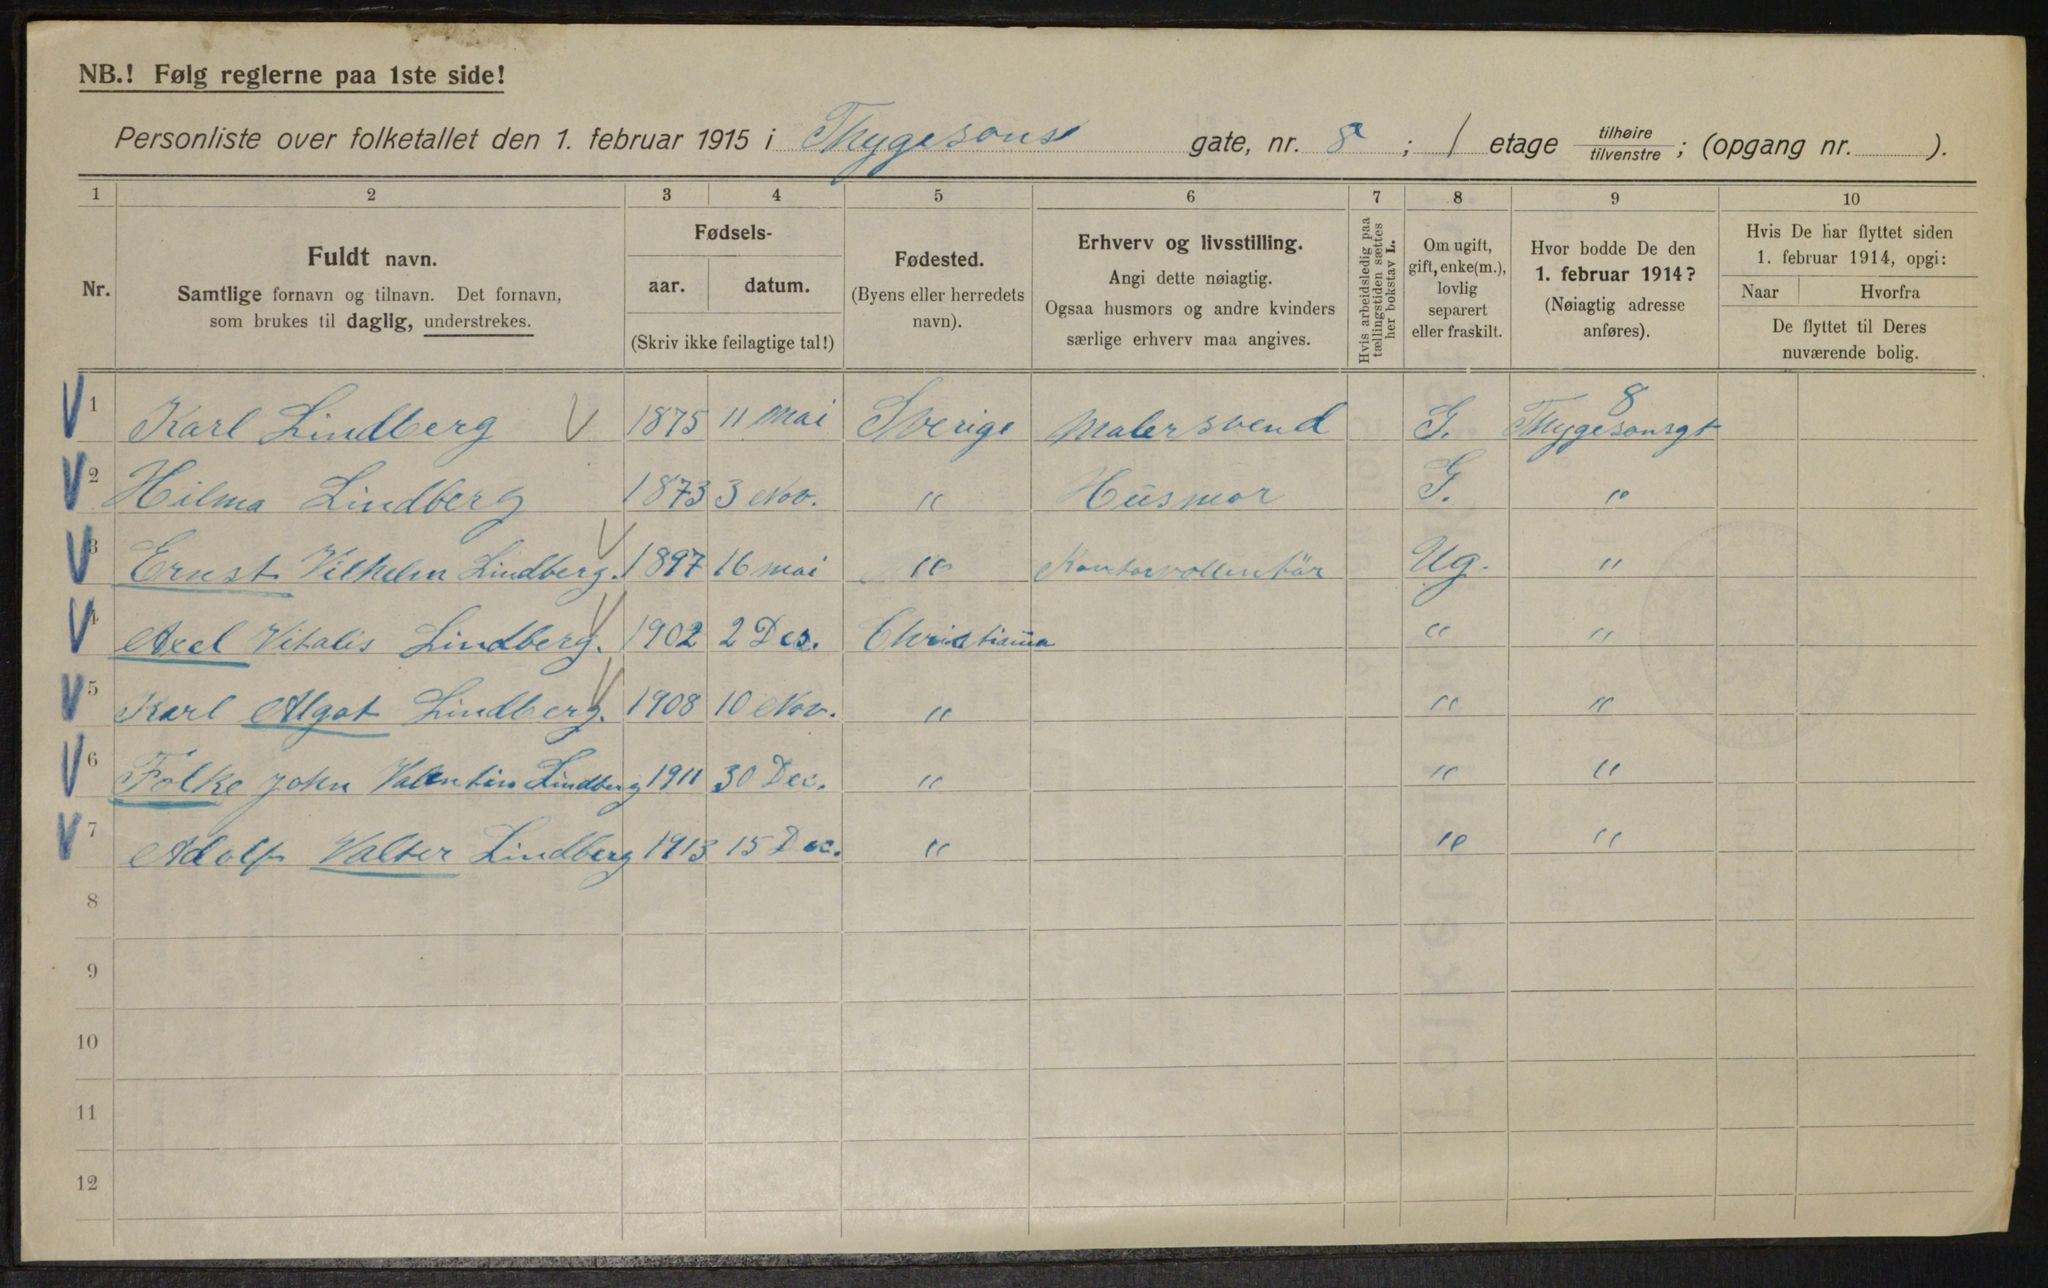 NB.! Følg reglerne paa 1ste side!
Personliste over folketallet den 1. februar 1915 i Thygesons gate, nr. 8 ; 1 etage tilhøire tilvenstre ; (opgang nr. ).
1 2 3 4 5 6 7 8 9 10
Nr.
Fuldt navn.
Samtlige fornavn og tilnavn. Det fornavn,
som brukes til daglig, understrekes.
Fødsels-
aar. datum.
(Skriv ikke feilagtige tal!)
Fødested.
(Byens eller herredets
navn).
Erhverv og livsstilling.
Angi dette nøiagtig.
Ogsaa husmors og andre kvinders
særlige erhverv maa angives.
Hvis arbeidsledig paa
tællingstiden sættes
her bokstav L.
Om ugift,
gift, enke(m.),
lovlig
separert
eller fraskilt.
Hvor bodde De den
1. februar 1914?
(Nøiagtig adresse
anføres).
Hvis De har flyttet siden
1. februar 1914, opgi:
Naar Hvorfra
De flyttet til Deres
nuværende bolig.
1 Karl Lindberg 1875 11 Mai Sverige Malersvend G. Thygesonsgt 8
2 Hilma Lindberg 1873 3 Nov. " Husmor G. "
3 Ernst Vilhelm Lindberg. 1897 16 mai " Kontorvollentär Ug. "
4 Axel Vitalis Lindberg. 1902 2 Des. Christiania " "
5 Karl Algot Lindberg. 1908 10 Nov. " " "
6 Folke John Valentin Lindberg 1911 30 Dec. " " "
7 Adolf Valter Lindberg 1913 15 Dec. " " "
8
9
10
11
12